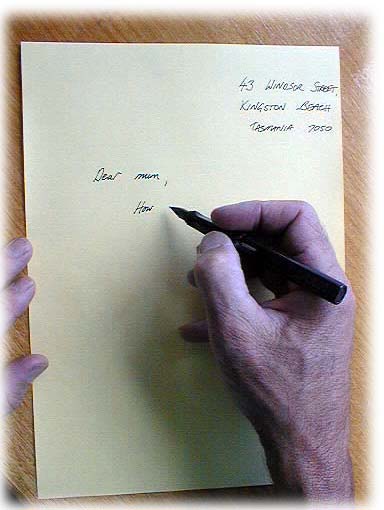 43 WINDSOR STREET,
KINGSTON BEACH
TASMANIA 7050
Dear mum,
How